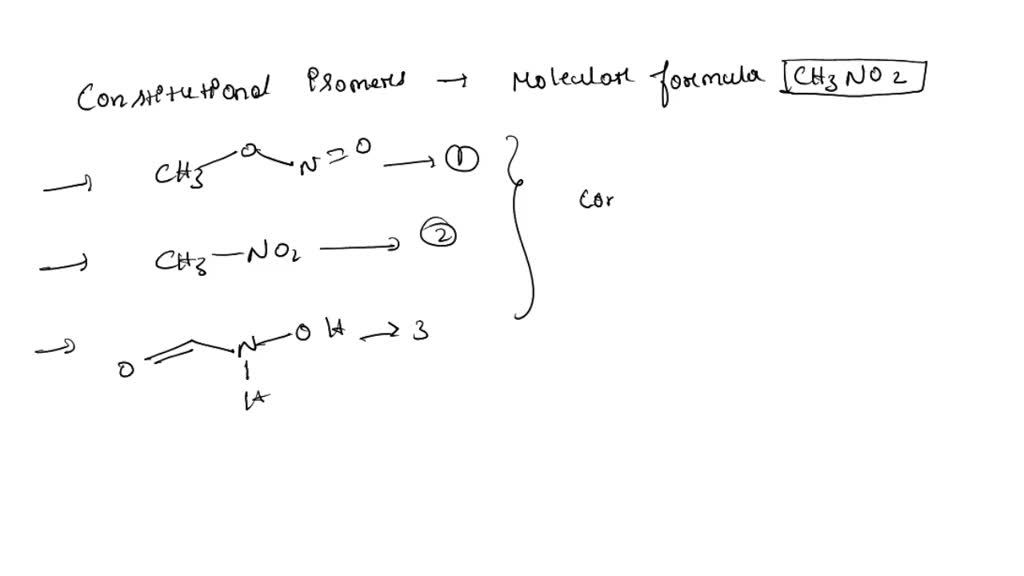 Constitutional Isomers → Molecular formula CH3NO2
→ CH3 O N = O → ①
→ CH3 - NO2 → ②
→ O N O H → 3
H
Cor